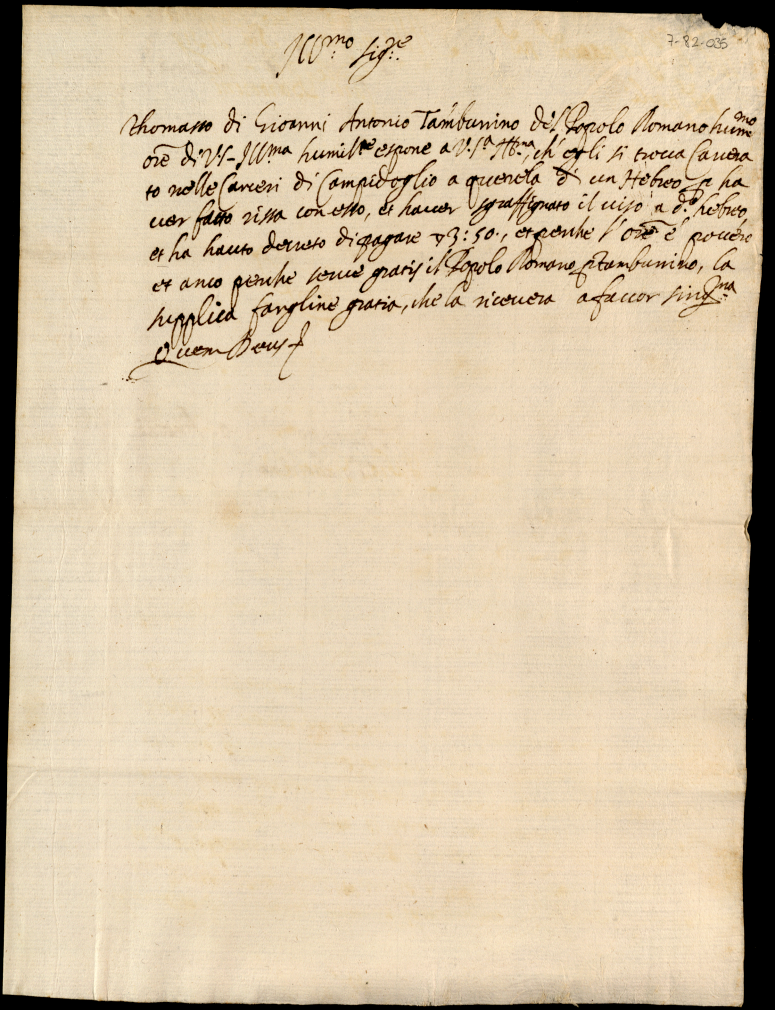 7-82-035
Ill.mo Sig.re
Thomasso di Gioanni Antonio Tamburrino del Popolo Romano hum.mo
ore di V.S. Ill.ma humilte espone a V.S.a Ill.ma, ch'egli si trova Carcera
to nelle Carceri di Campidoglio a querela di un Hebreo p ha
ver fatto rissa con esso, et haver sgraffignato il viso a d.o hebreo,
et ha hauto decreto di pagare ▽3:50., et perche l'ore è povero
et anco perche serve gratis il Popolo Romano p tamburrino, la
supplica fargline gratia, che la ricevera a favor sing.ma
Quem Deus